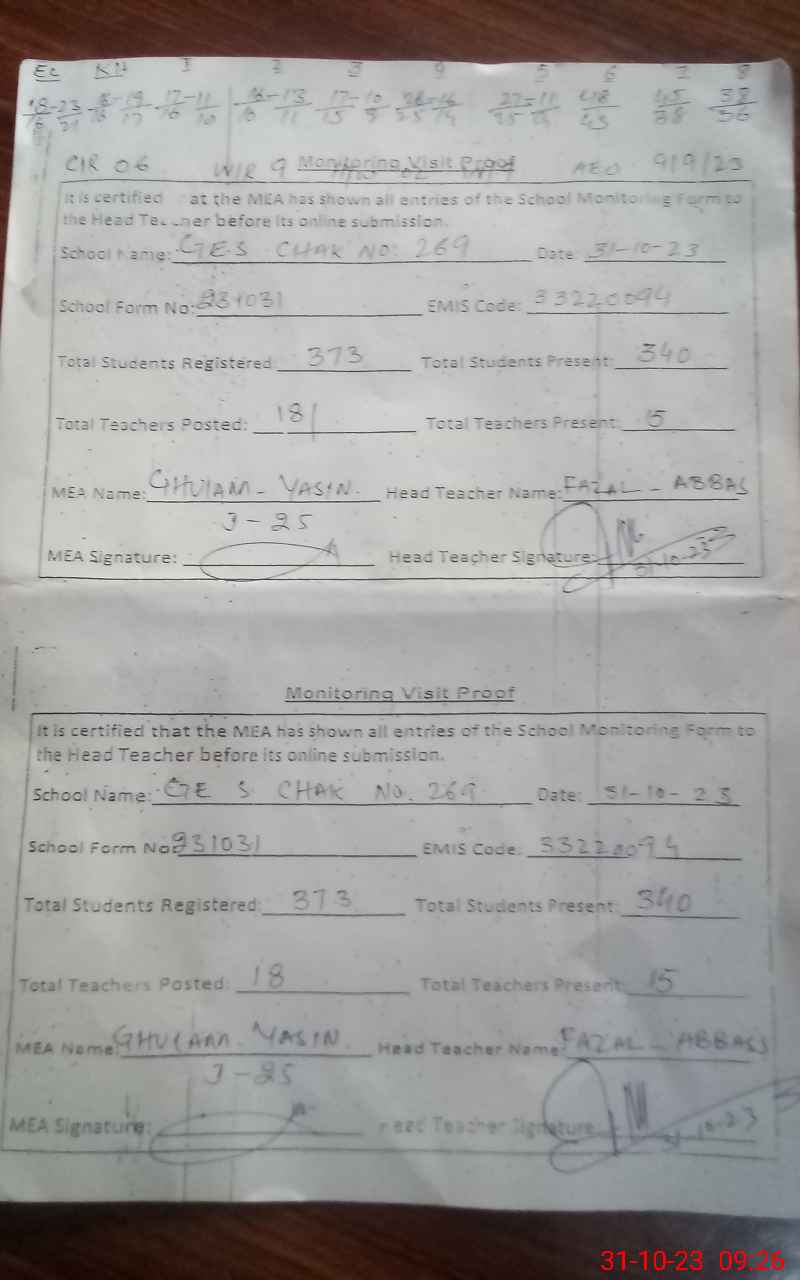 Ec KH 1 2 3 4 5 6 7 8
48 45 38
43 38 36
CIR 06 WIR 9 Monitoring Visit Proof AEO 9/9/23
It is certified at the MEA has shown all entries of the School Monitoring Form to
the Head Teacher before its online submission.
School Name: GES CHAK NO: 269 Date: 31-10-23
School Form No: 231031 EMIS Code: 33220094
Total Students Registered 373 Total Students Present: 340
Total Teachers Posted: 18 Total Teachers Present: 15
MEA Name: GHULAM - YASIN. Head Teacher Name: FAZAL - ABBAS
J-25
MEA Signature: Head Teacher Signature: 31-10-23
Monitoring Visit Proof
It is certified that the MEA has shown all entries of the School Monitoring Form to
the Head Teacher before its online submission.
School Name: GE S CHAK NO. 269 Date: 31-10-23
School Form No: 231031 EMIS Code: 33220094
Total Students Registered: 373 Total Students Present: 340
Total Teachers Posted: 18 Total Teachers Present: 15
MEA Name: GHULAM - YASIN. Head Teacher Name: FAZAL - ABBASS
J-25
MEA Signature: Head Teacher Signature: 31-10-23
31-10-23 09:26